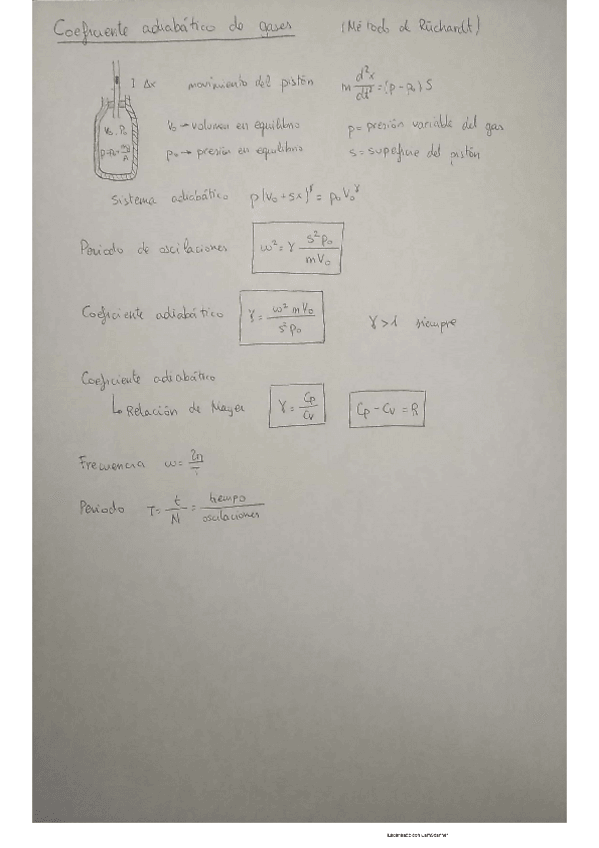 Coeficiente adiabático de gases (Método de Rüchardt)
Δx movimiento del pistón m d²x/dt² = (p - p₀) S
V₀, P₀ V₀ → volumen en equilibrio p = presión variable del gas
p₀ → presión en equilibrio S = superficie del pistón
Sistema adiabático p(V₀ + Sx)^γ = p₀ V₀^γ
Periodo de oscilaciones ω² = γ S² p₀ / mV₀
Coeficiente adiabático γ = ω² m V₀ / S² p₀ γ > 1 siempre
Coeficiente adiabático
↳ Relación de Mayer γ = Cp / Cv Cp - Cv = R
Frecuencia ω = 2π / T
Periodo T = t / N = tiempo / oscilaciones
Escaneado con CamScanner